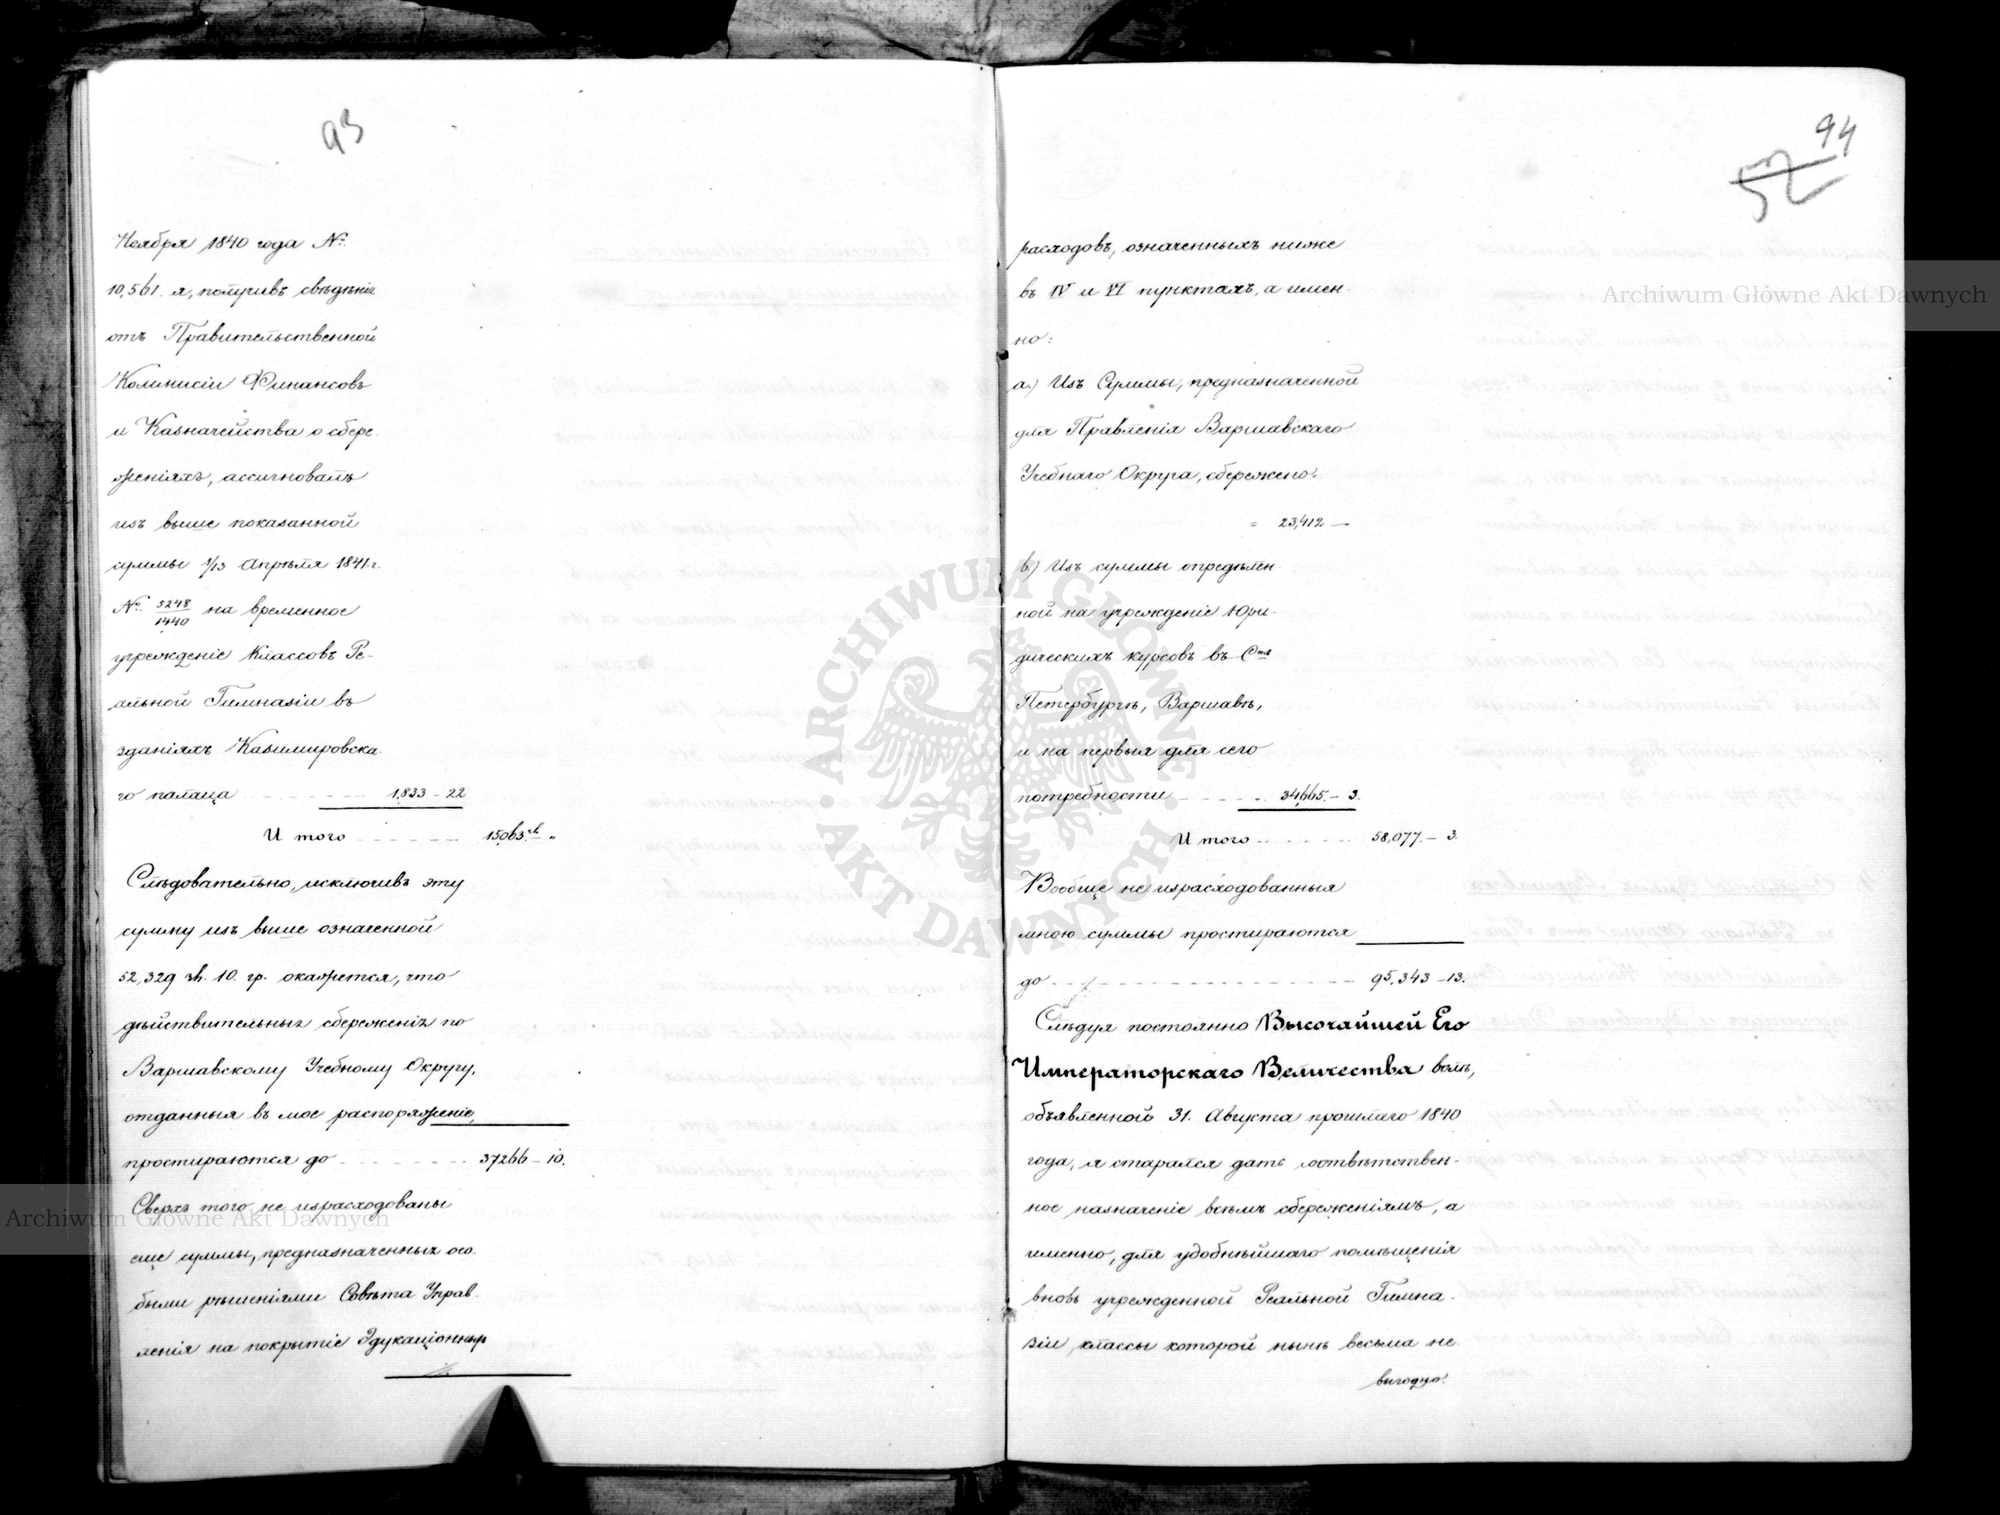 93
Ноября 1840 года №
10,561. я, получивъ свѣдѣнія
отъ Правительственной
Коммисіи Финансовъ
и Казначейства о сбере-
женіяхъ, ассигновалъ
изъ выше показанной
суммы 1/13 Апрѣля 1841 г.
№ 5248/1440 на временное
учрежденіе Классовъ Ре-
альной Гимназіи въ
зданіяхъ Казимировска-
го палаца 1,833 – 22
И того 15063 „
Слѣдовательно, исключивъ эту
сумму изъ выше означенной
52,329 зл. 10. гр. окажется, что
дѣйствительныя сбереженія по
Варшавскому Учебному Округу,
отданныя въ мое распоряженіе,
простираются до 37266 – 10.
Сверхъ того не израсходованы
еще суммы, предназначенныя осо-
быми рѣшеніями Совѣта Управ-
ленія на покрытіе Эдукаціонныхъ
94
52
расходовъ, означенныхъ ниже
въ IV и VI пунктахъ, а имен-
но:
а.) Изъ Суммы, предназначенной
для Правленія Варшавскаго
Учебнаго Округа, сбережено:
= 23,412 —
b.) Изъ суммы опредѣлен-
ной на учрежденіе Юри-
дическихъ курсовъ въ Стъ
Петербургѣ, Варшавѣ,
и на первыя для сего
потребности 34,665. – 3.
И того 58,077. – 3.
Вообще не израсходованныя
мною суммы простираются
до 95,343 – 13.
Слѣдуя постоянно Высочайшей Его
Императорскаго Величества волѣ,
объявленной 31. Августа прошлаго 1840
года, я старался дать соотвѣтствен-
ное назначеніе всѣмъ сбереженіямъ, а
именно, для удобнѣйшаго помѣщенія
вновь учрежденной Реальной Гимна-
зіи, классы которой нынѣ весьма не-
выгодно
Archiwum Główne Akt Dawnych
Archiwum Główne Akt Dawnych
ARCHIWUM GŁÓWNE · AKT DAWNYCH ·